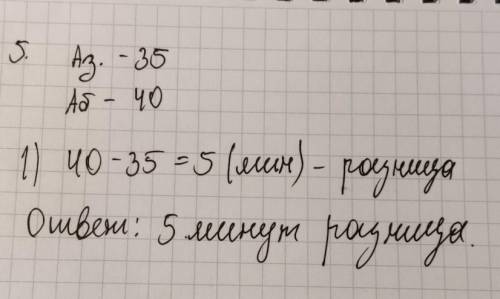 5. Аз. - 35
Аб - 40
1) 40 - 35 = 5 (мин) - разница
Ответ: 5 минут разница.